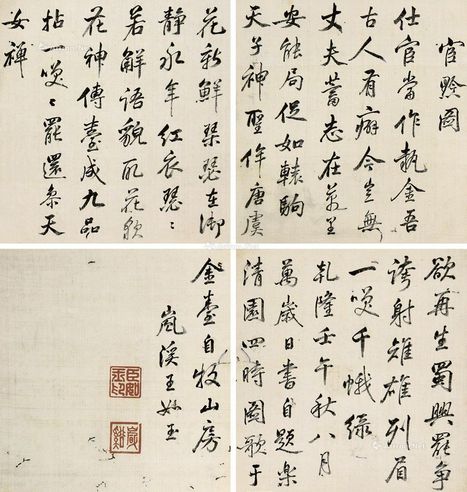 官黔圖
仕宦當作執金吾
古人有癖今豈無
丈夫蓄志在萬里
安能局促如轅駒
天子神聖侔唐虞
花新鮮琹瑟在御
靜永年紅衣瑟々
若解語貌取花
花神傳臺成九品
拈一笑々罷還參天
女禪
欲再生蜀興罷爭
誇射雉雄列眉
一笑千峨綠
乾隆壬午秋八月
萬歲日書自題樂
清園四時圖歌于
金臺自牧山房
嵐溪王如玉